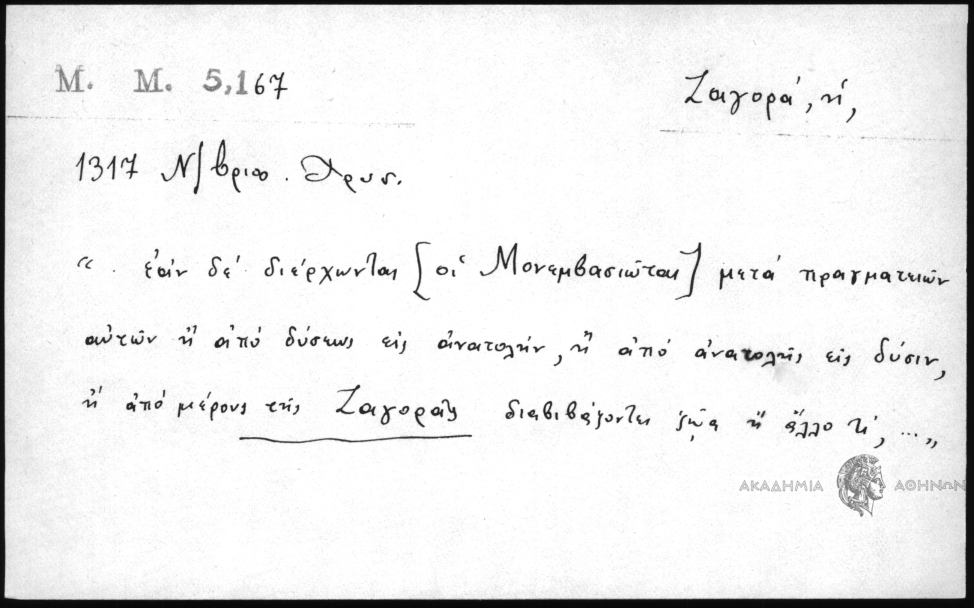 Μ. Μ. 5,167
Ζαγορά, ἡ,
1317 Ν/βριο. Χρυσ.
". ἐὰν δὲ διέρχωνται [οἱ Μονεμβασιῶται] μετὰ πραγματειῶν
αὐτῶν ἢ ἀπὸ δύσεως εἰς ἀνατολήν, ἢ ἀπὸ ἀνατολῆς εἰς δύσιν,
ἢ ἀπὸ μέρους τῆς Ζαγορᾶς διαβιβάζονται ζῷα ἢ ἄλλο τι, ...,,
ΑΚΑΔΗΜΙΑ ΑΘΗΝΩΝ